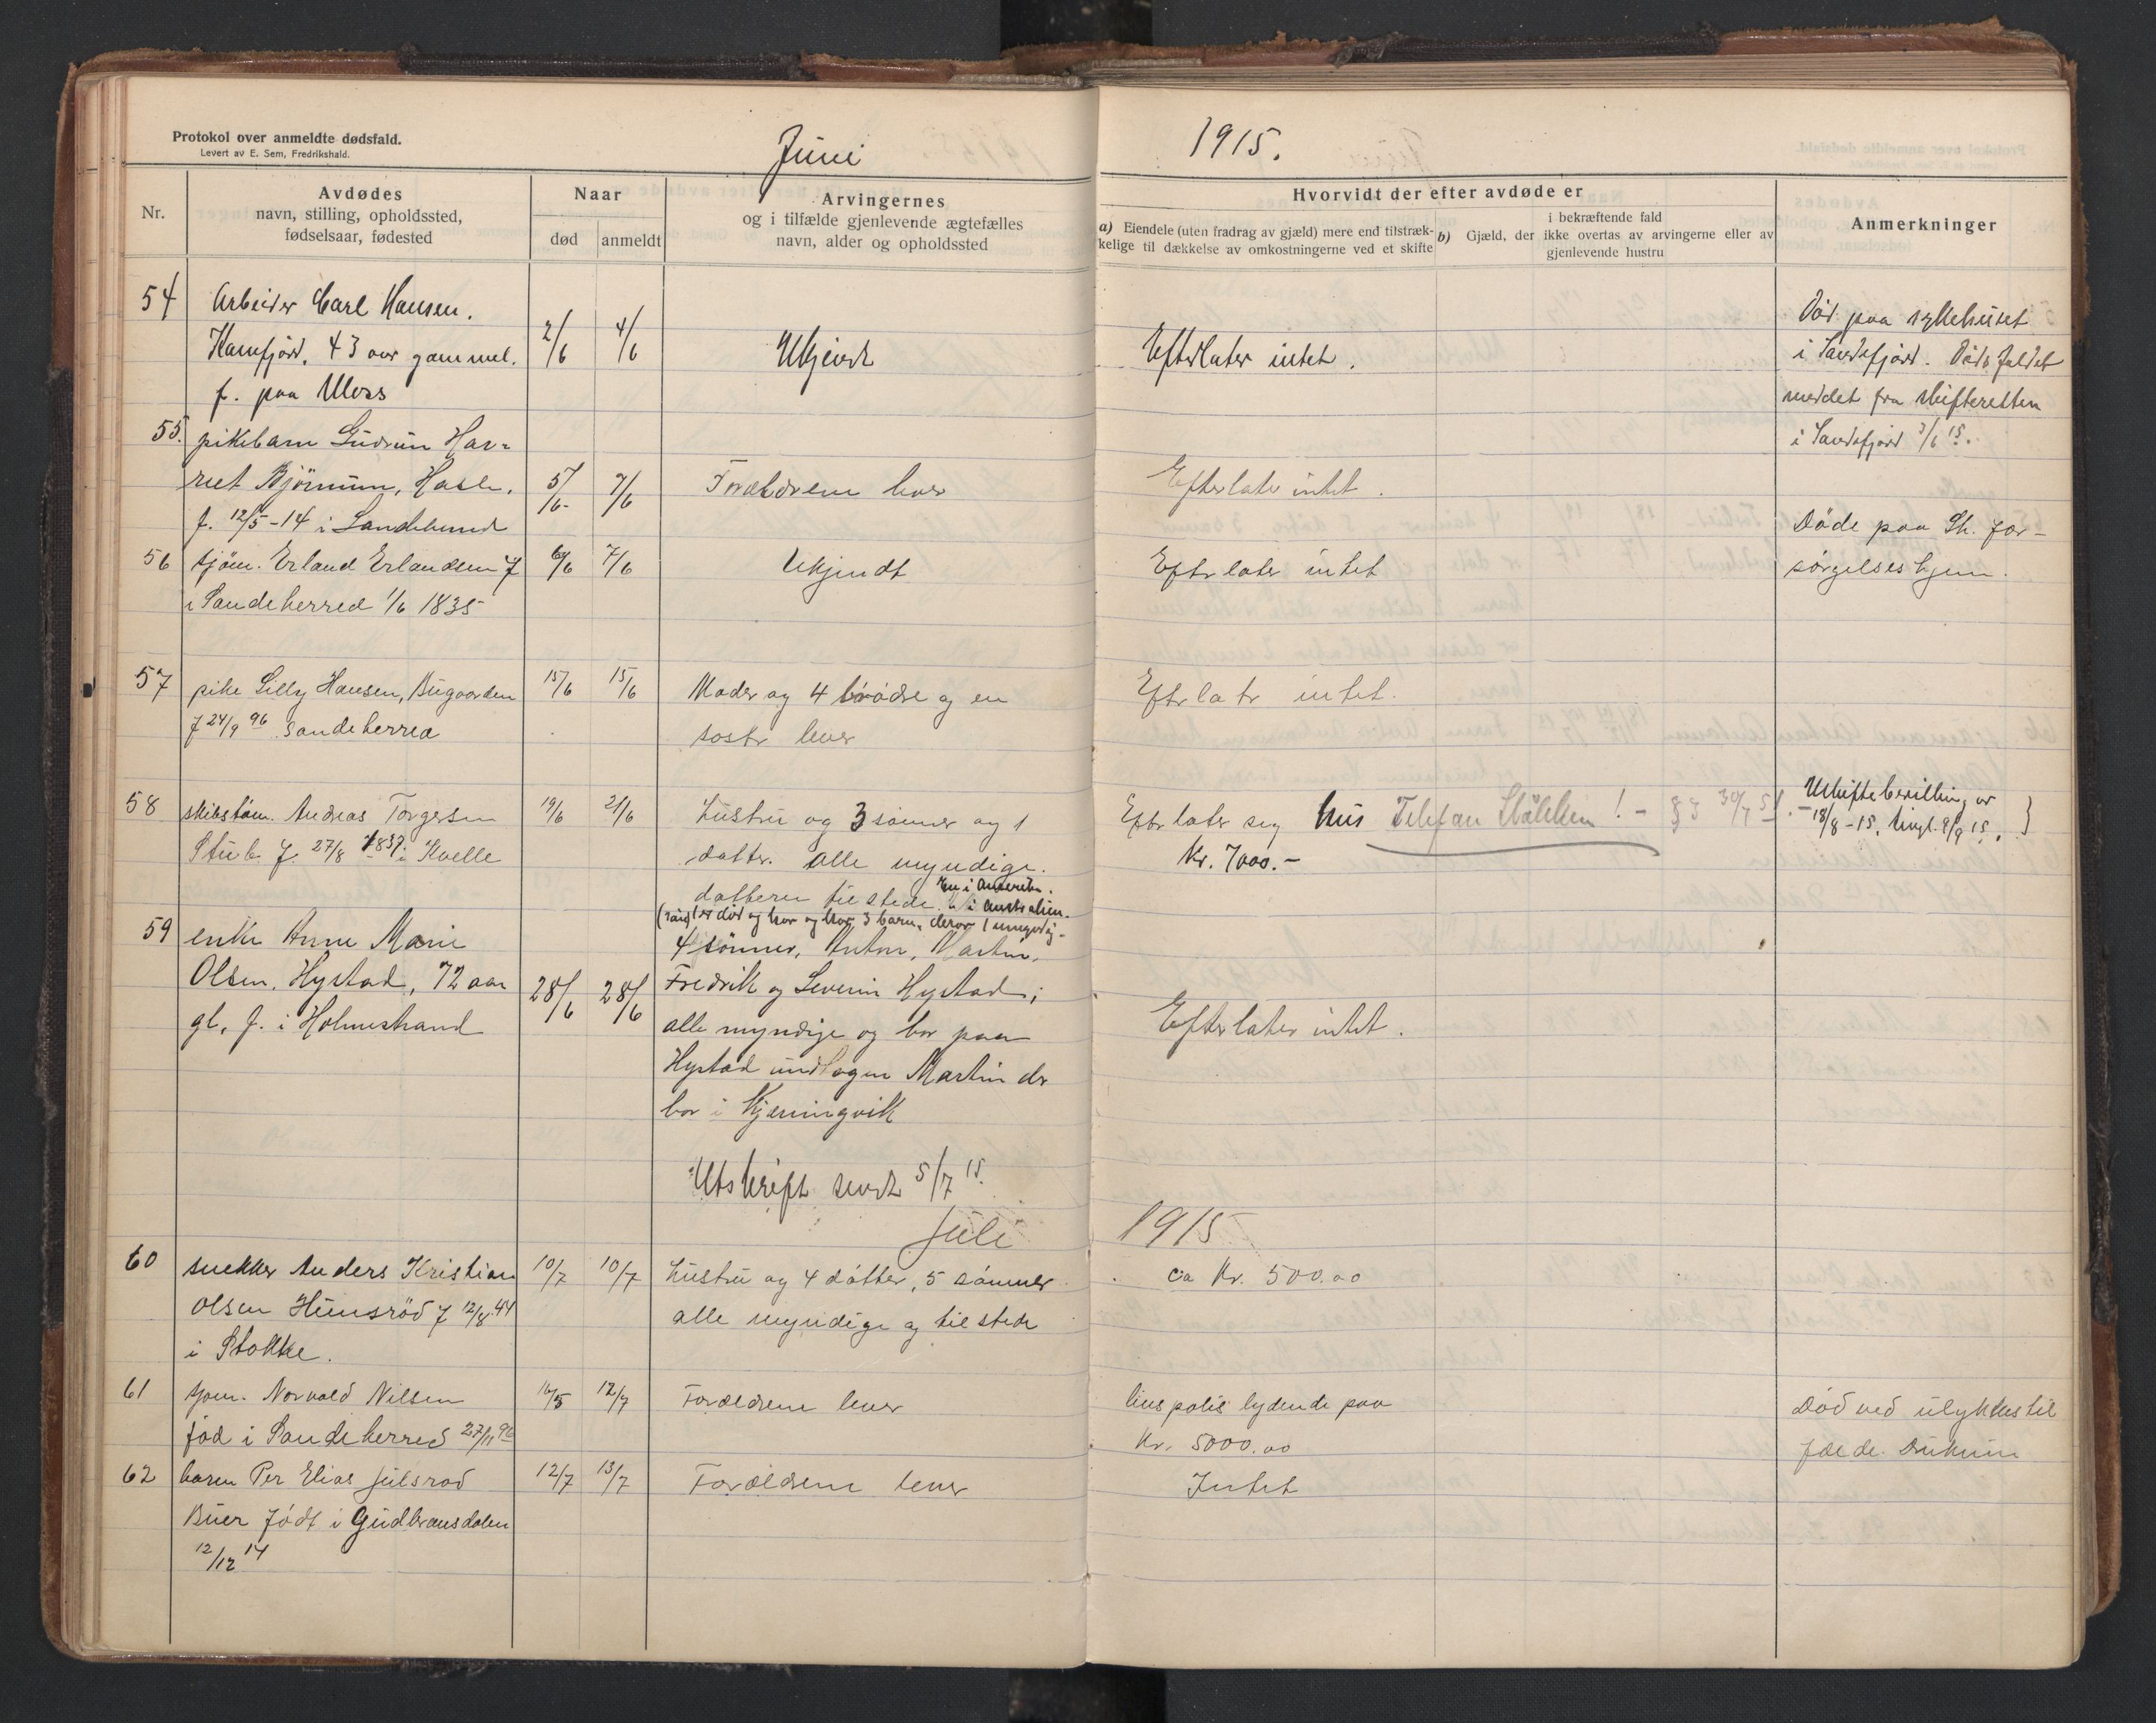 Protokol over anmeldte dødsfald.
Levert av E. Sem, Fredrikshald.
Juni
1915.
Nr.
Avdødes
navn, stilling, opholdssted,
fødselsaar, fødested
Naar
død
anmeldt
Arvingernes
og i tilfælde gjenlevende ægtefælles
navn, alder og opholdssted
Hvorvidt der efter avdøde er
a) Eiendele (uten fradrag av gjæld) mere end tilstræk-
kelige til dækkelse av omkostningerne ved et skifte
b) Gjæld, der
i bekræftende fald
ikke overtas av arvingerne eller av
gjenlevende hustru
Anmerkninger
54
Arbeider Carl Hansen.
Kamfjord, 43 aar gammel.
f. paa
2/6
4/6
Ukjendt
Efterlater intet.
Död paa sykehuset
i Sandefjord. Dödsfaldet
meldet fra skifteretten
i Sandefjord 3/6 15.
55.
pikebarn Gudrun Har-
riet Bjørnum, Hasle.
f. 12/5-14 i
5/6-
7/6
Forældrene lever
Efterlater intet.
56
sjöm. Erland Erlandsen f
i Sandeherred 1/6 1835
6/6
7/6
Ukjendt
Efterlater intet
Döde paa Sh. for-
sörgelseshjem.
57
pike Lilly Hansen, Bugaarden
f 24/9 96 Sandeherred
15/6
15/6
Moder og 4 brödre og en
søster lever
Efterlater intet.
58
skibstöm. Andreas Torgersen
Stub f. 27/8 1837 i Kvelle
19/6
21/6
Hustru og 3 sönner og 1
datter. alle myndige.
datteren tilstede. 1 i Australien.
En i Amerika.
Efterlater seg hus Telefon Stålkken! - § 3 30/7 51.
Kr. 7000.-
Uskiftebevilling av
18/8-15, tingl. 9/9 15.
59
enke Anne Marie
Olsen, Hystad, 72 aar
gl, f. i Holmestrand
28/6
28/6
4 sönner, Anton, Martin,
Fredrik og Severin Hystad;
alle myndige og bor paa
Hystad undtagen Martin der
bor i Kjerringvik
Efterlater intet.
Utskrift sendt 5/7 15.
Juli
1915
60
snekker Anders Kristian
Olsen Hunsröd f 12/8 44
i Stokke.
10/7
10/7
Hustru og 4 dötter, 5 sönner
alle myndige og tilstede
ca Kr. 500.00
61
sjøm. Norvald Nilsen
föd i Sandeherred 27/11 96
16/5
12/7
Forældrene lever
livspolis lydende paa
Kr. 5000.00
Död ved ulykkestil
fælde. Druknin
62
barn Per Elias Julsrød
Buer født i Gudbransdalen
12/12 14
12/7
13/7
Forældrene lever
Intet